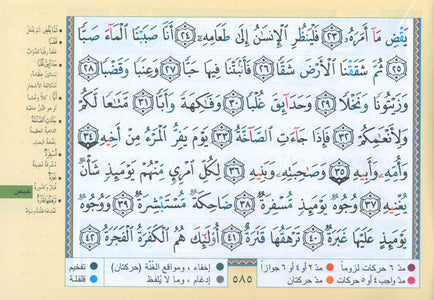 يَقْضِ مَآ أَمَرَهُۥ ٢٣ فَلْيَنظُرِ ٱلْإِنسَٰنُ إِلَىٰ طَعَامِهِۦٓ ٢٤ أَنَّا صَبَبْنَا ٱلْمَآءَ صَبًّا
٢٥ ثُمَّ شَقَقْنَا ٱلْأَرْضَ شَقًّا ٢٦ فَأَنۢبَتْنَا فِيهَا حَبًّا ٢٧ وَعِنَبًا وَقَضْبًا ٢٨
وَزَيْتُونًا وَنَخْلًا ٢٩ وَحَدَآئِقَ غُلْبًا ٣٠ وَفَٰكِهَةً وَأَبًّا ٣١ مَّتَٰعًا لَّكُمْ
وَلِأَنْعَٰمِكُمْ ٣٢ فَإِذَا جَآءَتِ ٱلصَّآخَّةُ ٣٣ يَوْمَ يَفِرُّ ٱلْمَرْءُ مِنْ أَخِيهِ ٣٤
وَأُمِّهِۦ وَأَبِيهِ ٣٥ وَصَٰحِبَتِهِۦ وَبَنِيهِ ٣٦ لِكُلِّ ٱمْرِئٍ مِّنْهُمْ يَوْمَئِذٍ شَأْنٌ
يُغْنِيهِ ٣٧ وُجُوهٌ يَوْمَئِذٍ مُّسْفِرَةٌ ٣٨ ضَاحِكَةٌ مُّسْتَبْشِرَةٌ ٣٩ وَوُجُوهٌ
يَوْمَئِذٍ عَلَيْهَا غَبَرَةٌ ٤٠ تَرْهَقُهَا قَتَرَةٌ ٤١ أُو۟لَٰٓئِكَ هُمُ ٱلْكَفَرَةُ ٱلْفَجَرَةُ ٤٢
مدّ ٦ حركات لزوماً مدّ ٢ أو ٤ أو ٦ جوازاً
مدّ واجب ٤ أو ٥ حركات مدّ حركتان
٥٨٥
إخفاء، ومواقع الغُنَّة (حركتان) تفخيم
إدغام، وما لا يُلفظ قلقلة
عبس